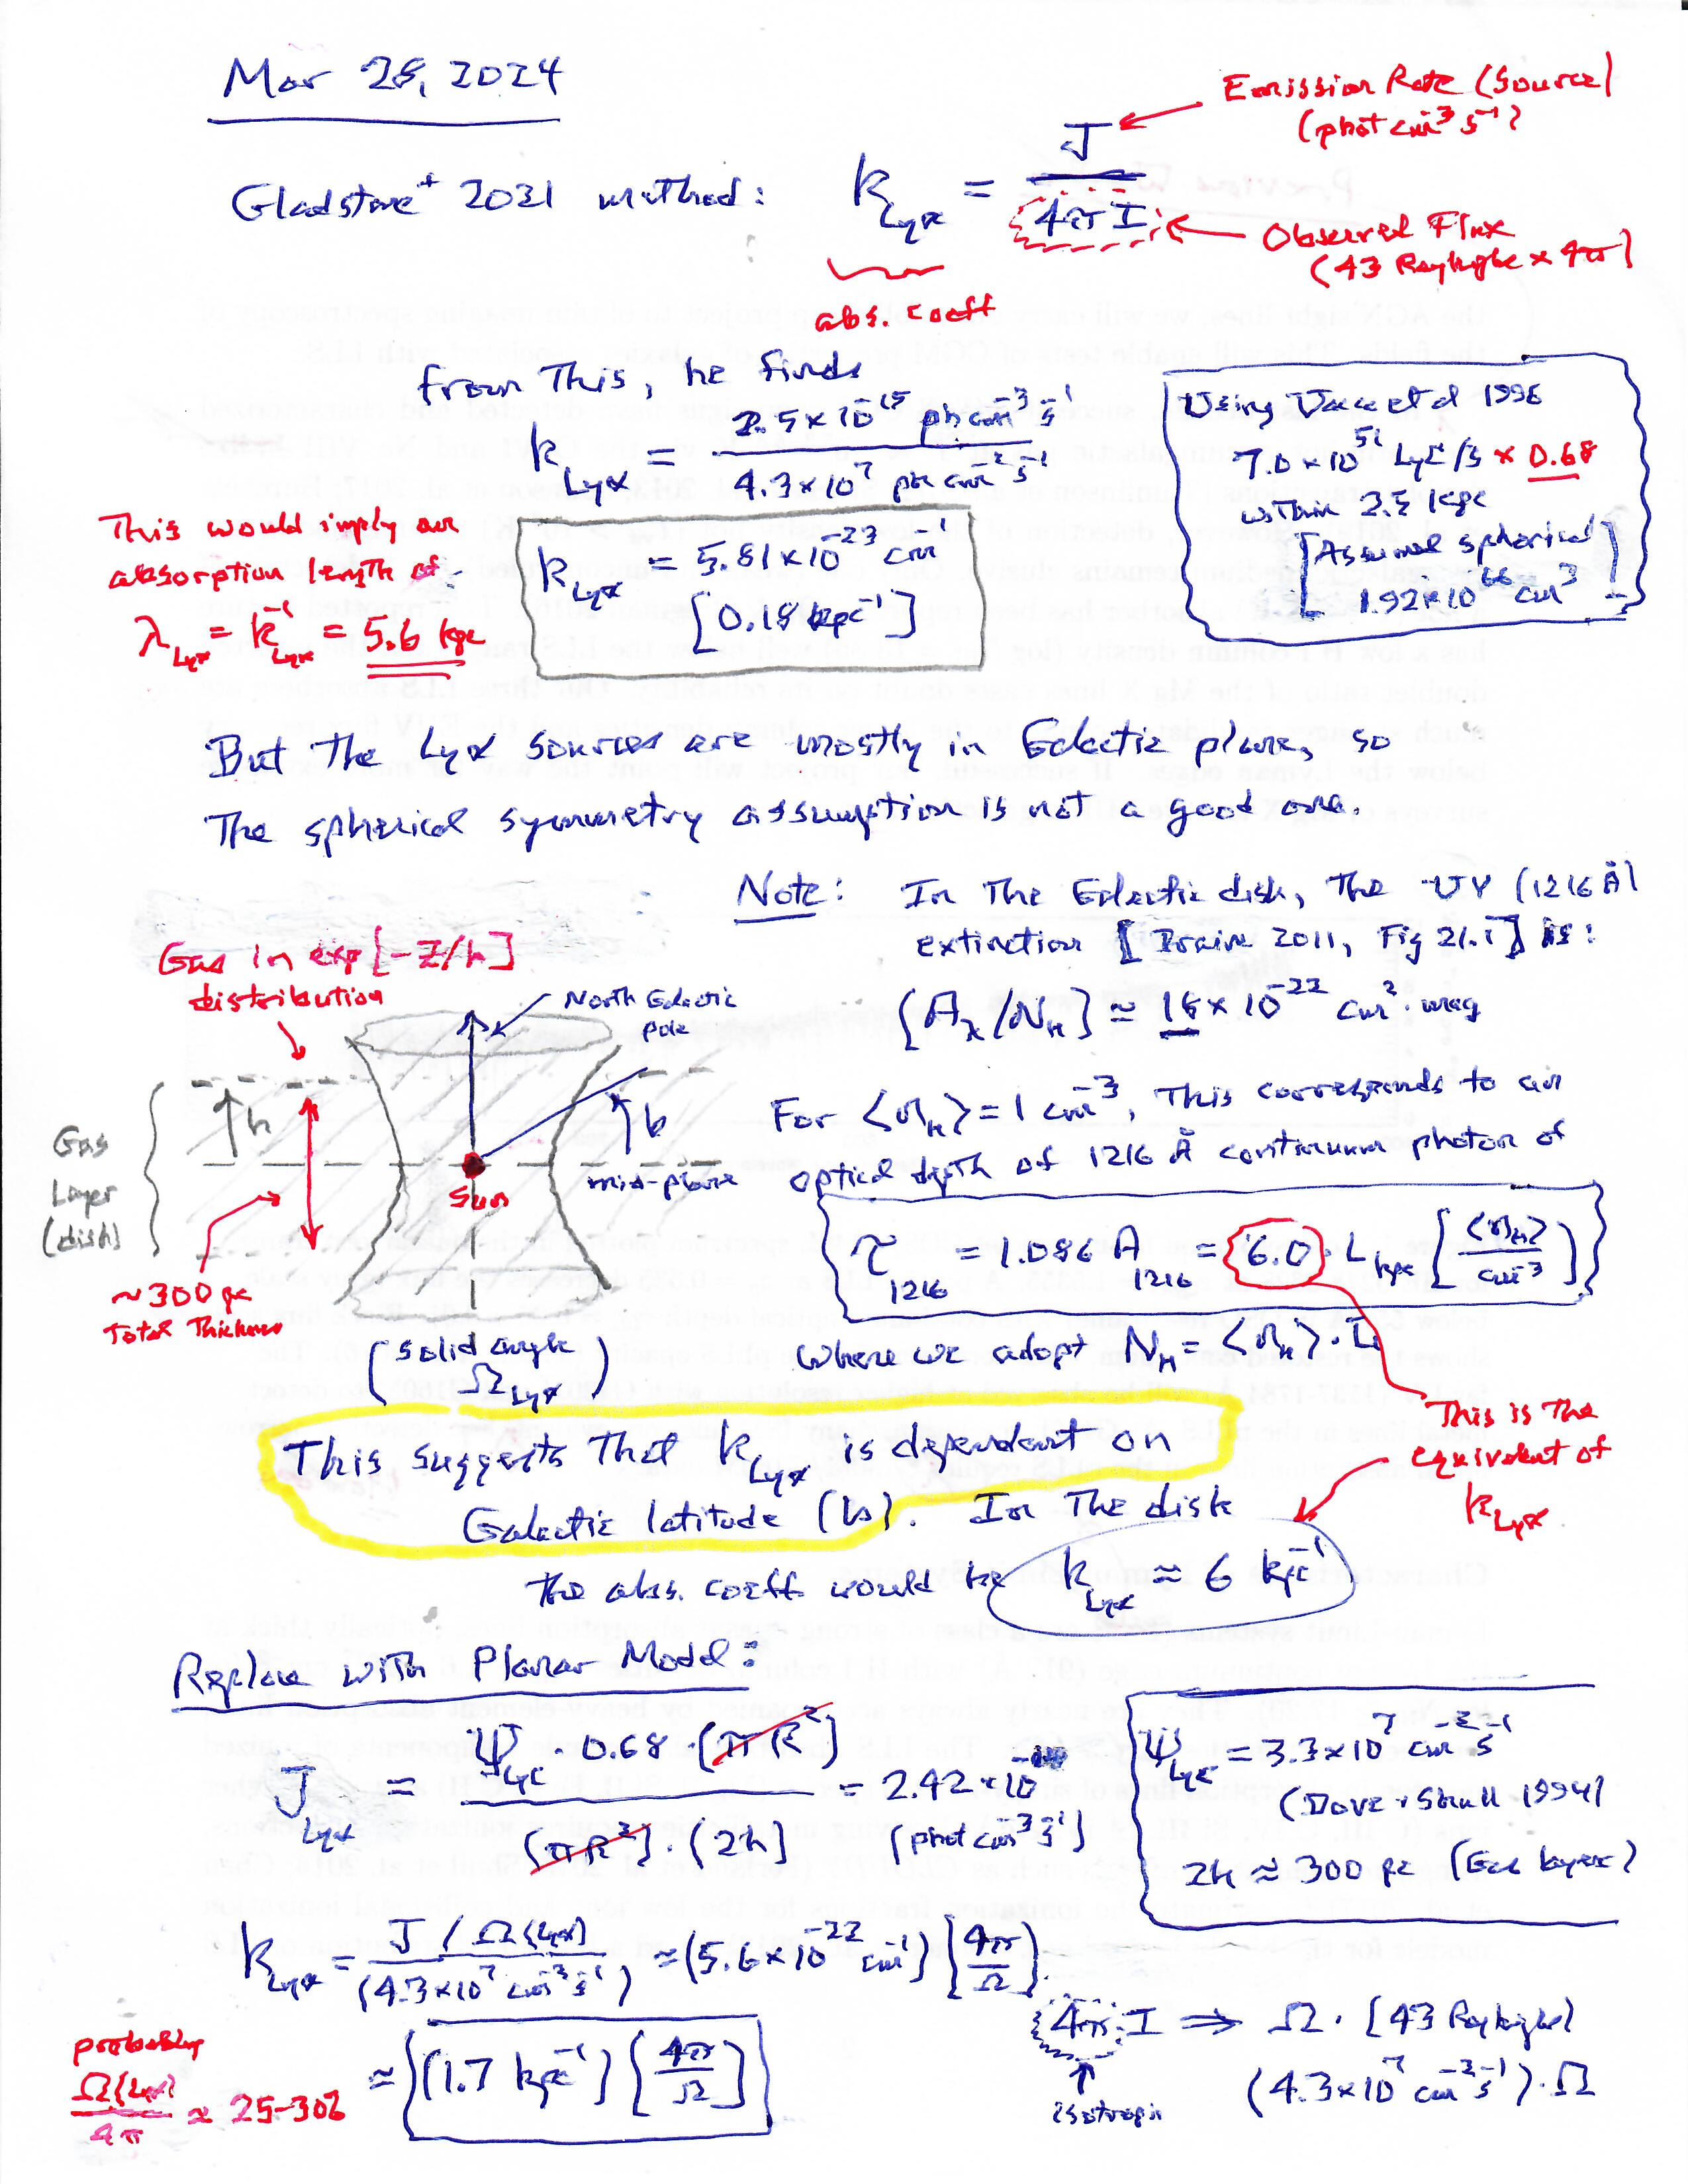 Mar 28, 2024
Emission Rate (Source)
(phot cm⁻³ s⁻¹)
Gladstone⁺ 2021 method: k_Lyα = J / 4π I
Observed Flux
(43 Rayleighs × 4π)
abs. coeff
from This, he finds
k_Lyα = 2.5×10⁻¹⁵ ph cm⁻³ s⁻¹ / 4.3×10⁷ ph cm⁻² s⁻¹
k_Lyα = 5.81×10⁻²³ cm⁻¹
[0.18 kpc⁻¹]
Using Vacca et al 1996
7.0×10⁵¹ LyC/s × 0.68
within 2.5 kpc
[Assumed spherical
1.92×10⁶⁶ cm³]
This would imply an
absorption length of:
λ_Lyα = k⁻¹_Lyα = 5.6 kpc
But The Lyα sources are mostly in Galactic plane, so
The spherical symmetry assumption is not a good one.
Note: In The Galactic disk, The UV (1216 Å)
extinction [Draine 2011, Fig 21.1] is:
(A_λ/N_H) ≈ 18×10⁻²² cm² mag
For <n_H> = 1 cm⁻³, This corresponds to an
optical depth of 1216 Å continuum photon of
τ_1216 = 1.086 A_1216 = 6.0 · L_kpc [<n_H> / cm⁻³]
Where we adopt N_H = <n_H> · L
This is The
equivalent of
k_Lyα
Gas in exp[-z/h]
distribution
North Galactic
pole
h
b
mid-plane
Sun
Gas
Layer
(disk)
~300 pc
Total Thickness
(solid angle
Ω_Lyα)
This suggests That k_Lyα is dependent on
Galactic latitude (b). In The disk
The abs. coeff would be k_Lyα ≈ 6 kpc⁻¹
Replace with Planar Model:
J_Lyα = Ψ_LyC · 0.68 · (πR²) / (πR²) · (2h) = 2.42×10⁻¹⁴
(phot cm⁻³ s⁻¹)
Ψ_LyC = 3.3×10⁷ cm⁻² s⁻¹
(Dove + Shull 1994)
2h ≈ 300 pc (Gas layer)
k_Lyα = J / Ω(Lyα) / (4.3×10⁷ cm⁻³ s⁻¹) ≈ (5.6×10⁻²² cm⁻¹) [4π/Ω]
≈ (1.7 kpc⁻¹) [4π/Ω]
probably
Ω(Lyα)/4π ≈ 25-30%
4π I ⇒ Ω · [43 Rayleighs]
isotropic
(4.3×10⁷ cm⁻² s⁻¹) · Ω